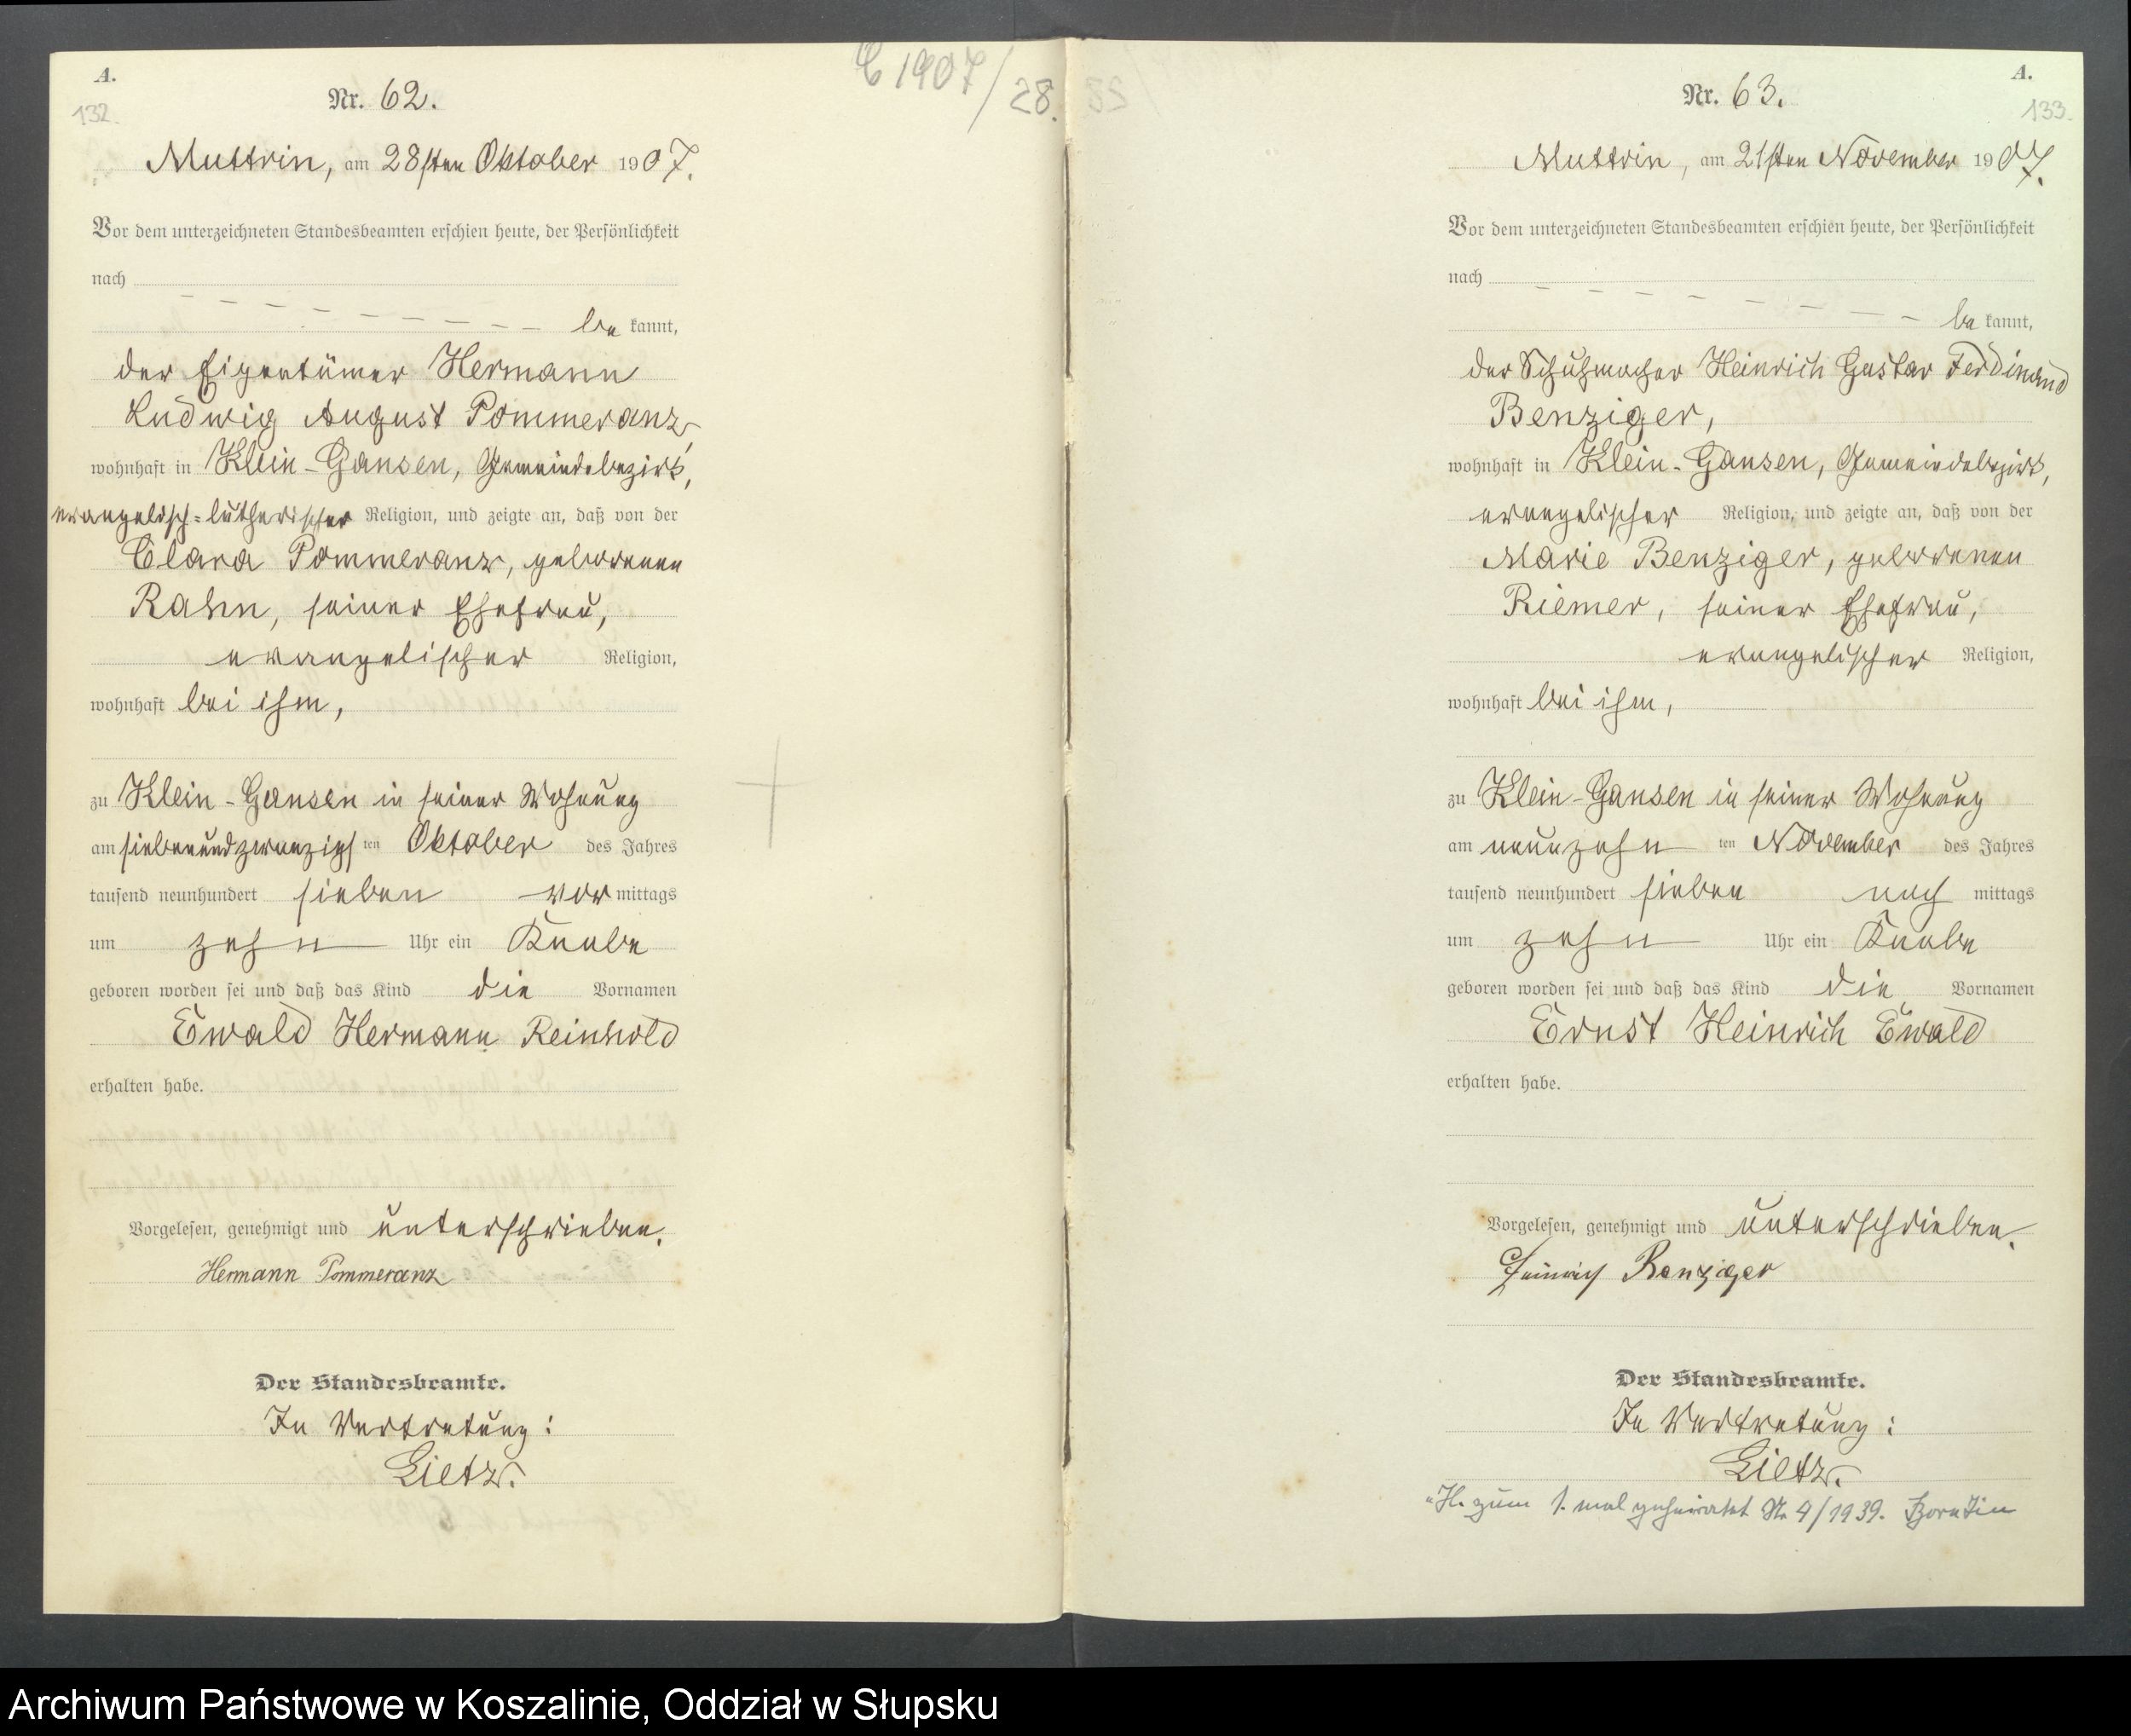 C 1907/28.
A.
132.
Nr. 62.
Muttrin, am 28sten Oktober 1907.
Vor dem unterzeichneten Standesbeamten erschien heute, der Persönlichkeit
nach
be kannt,
der Eigentümer Hermann
Ludwig August Pommeranz,
wohnhaft in Klein-Gansen, Gemeindebezirk,
evangelisch=lutherischer Religion, und zeigte an, daß von der
Clara Pommeranz, geborenen
Rahn, seiner Ehefrau,
evangelischer Religion,
wohnhaft bei ihm,
zu Klein-Gansen in seiner Wohnung
am siebenundzwanzigsten Oktober des Jahres
tausend neunhundert sieben vor mittags
um zehn Uhr ein Knabe
geboren worden sei und daß das Kind die Vornamen
Ewald Hermann Reinhold
erhalten habe.
Vorgelesen, genehmigt und unterschrieben.
Hermann Pommeranz
Der Standesbeamte.
In Vertretung:
Lietz.
A.
133.
Nr. 63.
Muttrin, am 21sten November 1907.
Vor dem unterzeichneten Standesbeamten erschien heute, der Persönlichkeit
nach
be kannt,
der Schuhmacher Heinrich Gustav Ferdinand
Benziger,
wohnhaft in Klein-Gansen, Gemeindebezirk,
evangelischer Religion, und zeigte an, daß von der
Marie Benziger, geborenen
Riemer, seiner Ehefrau,
evangelischer Religion,
wohnhaft bei ihm,
zu Klein-Gansen in seiner Wohnung
am neunzehn ten November des Jahres
tausend neunhundert sieben nach mittags
um zehn Uhr ein Knabe
geboren worden sei und daß das Kind die Vornamen
Ernst Heinrich Ewald
erhalten habe.
Vorgelesen, genehmigt und unterschrieben.
Heinrich Benziger
Der Standesbeamte.
In Vertretung:
Lietz.
zum 1. mal geheiratet Nr 4/1939.
Archiwum Państwowe w Koszalinie, Oddział w Słupsku